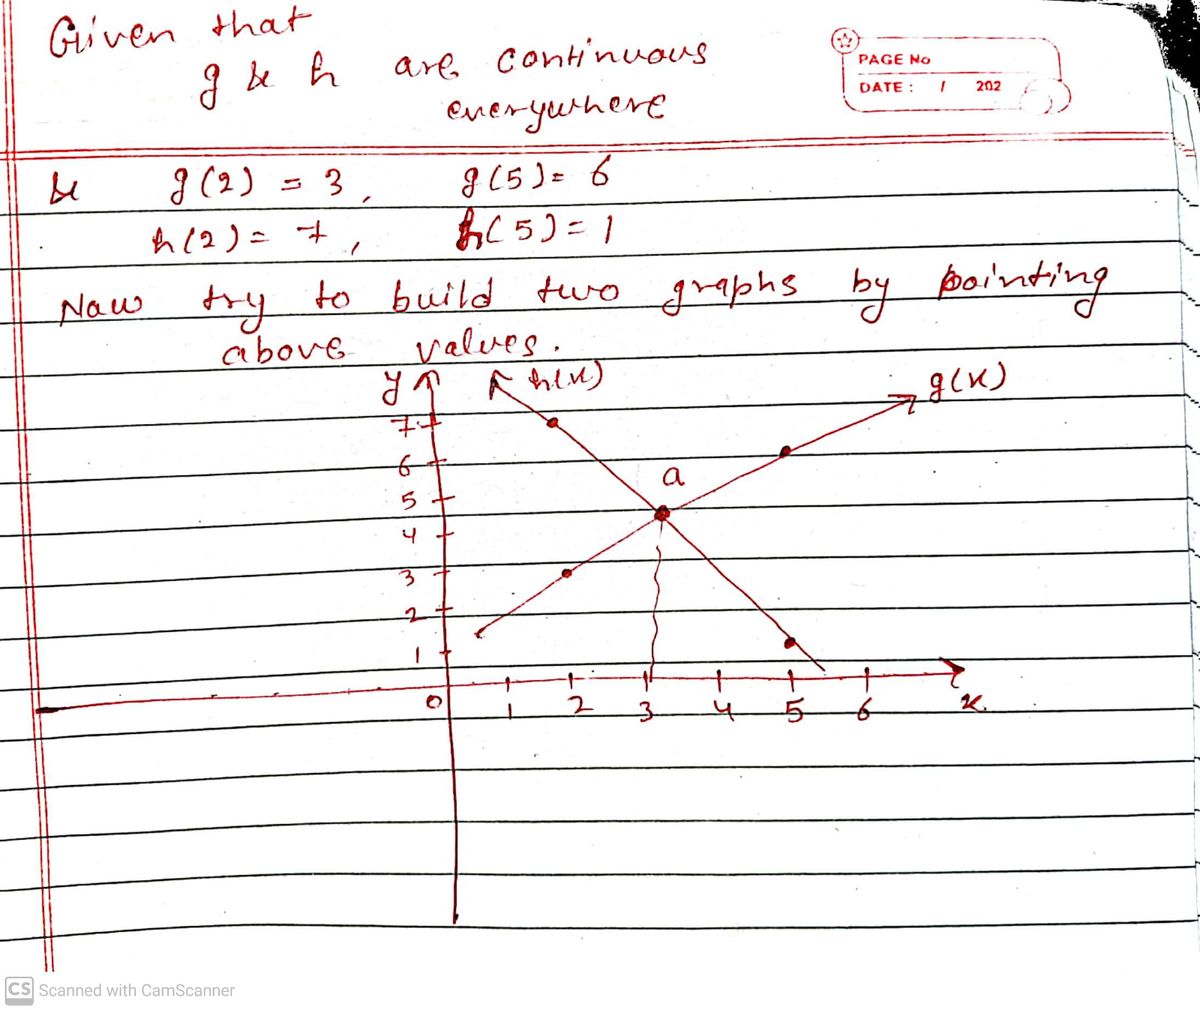 Given that
g & h are continuous
everywhere
PAGE No
DATE : / 202
& g(2) = 3, g(5) = 6
h(2) = 7, h(5) = 1
Naw try to build two graphs by pointing
above values.
y h(x) g(x)
7
6
a
5
4
3
2
1
0 1 2 3 4 5 6 x
CS Scanned with CamScanner